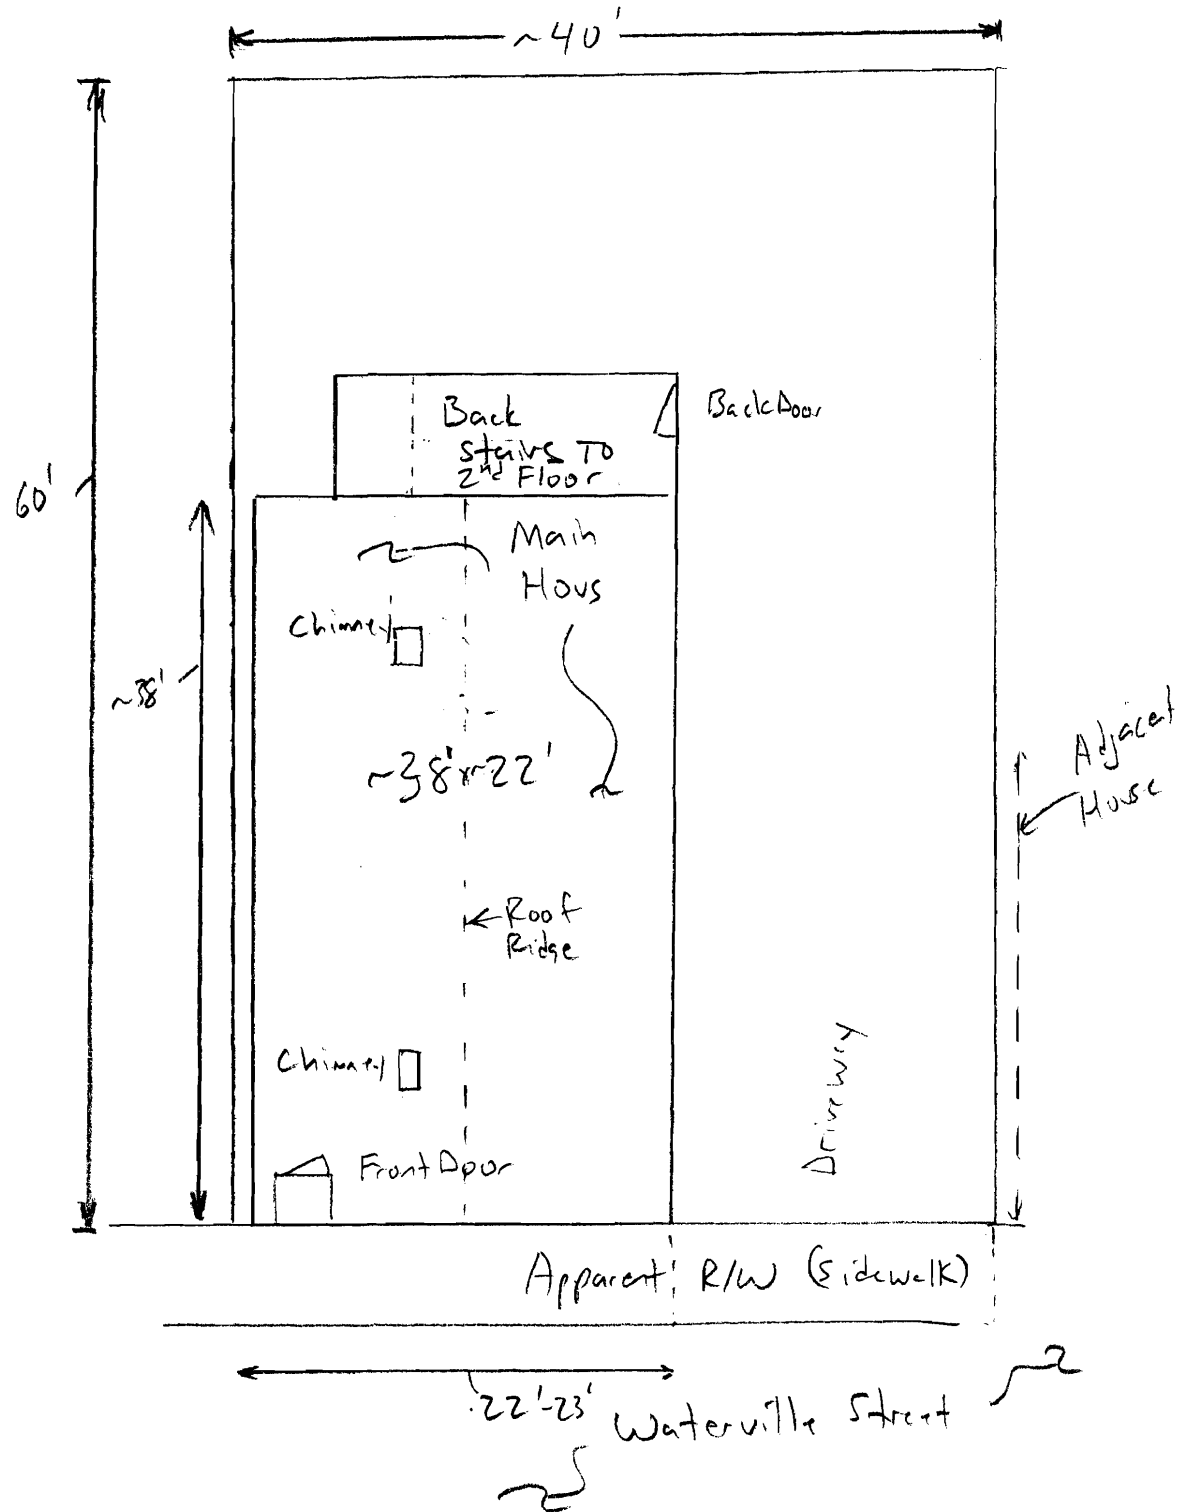 ~40'
Back
Stairs To
2nd Floor
Back Door
60'
Main
Hous
Chimney
~38'
~38'x~22'
Adjacent
House
Roof
Ridge
Driveway
Chimney
Front Door
Apparent R/W (Sidewalk)
22'-23'
Waterville Street